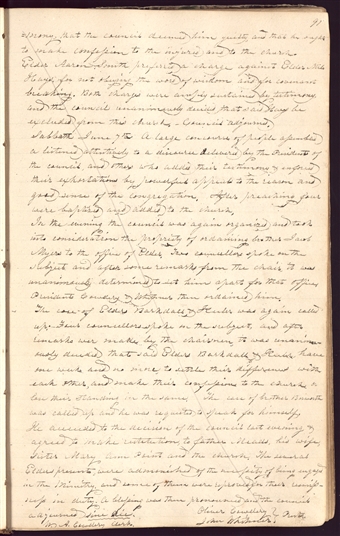 91
that the council deemed him guilty, and that he ought
to make confession to the injured and to the church.
Elder Aaron Smith prefered a charge against Elder
Hays, for not obeying the word of wisdom and for covenant
breaking. Both charges were sustained by testimony
and the council unanimously decided that said Hays be
excluded from this church. Council adjourned.
Sabbath June 7th A large concourse of people assembled
& listened attentively to a discourse delivered by the Presidents of
the council and others who added their testimony & enforced
their exhortations by powerful appeals to the reason and
good sense of the congregation. After preaching four
were baptized and added to the church.
In the evening the council was again organized and took
into consideration the propriety of ordaining brother
Myers to the office of Elder. Two councellors spoke on the
subject and after some remarks from the chair it was
unanimously determined to set him apart for that office,
Presidents Cowdery & Whitmer then ordained him.
The case of Elders Barkdall & Keeler was again called
up. Four councellors spoke on the subject, and after
remarks were made by the chairman it was unanim-
ously decided that said Elders Barkdall & Keeler have
one week and no more to settle their differences with
each other and make their confessions to the church or
lose their standing in the same. The case of brother
was called up and he was required to speak for himself,
He acceeded to the decision of the council last evening &
agreed to make restitution to father Meads, his wife,
Sister Mary and the church. The several
Elders present, were admonished of the necessity of being engaged
in the ministry, and some of them were reproved for their remiss-
ness in duty. A blessing was then pronounced and the council
adjourned sine die.
Oliver Cowdery
John Whitmer
W. A. Cowdery Clerk.